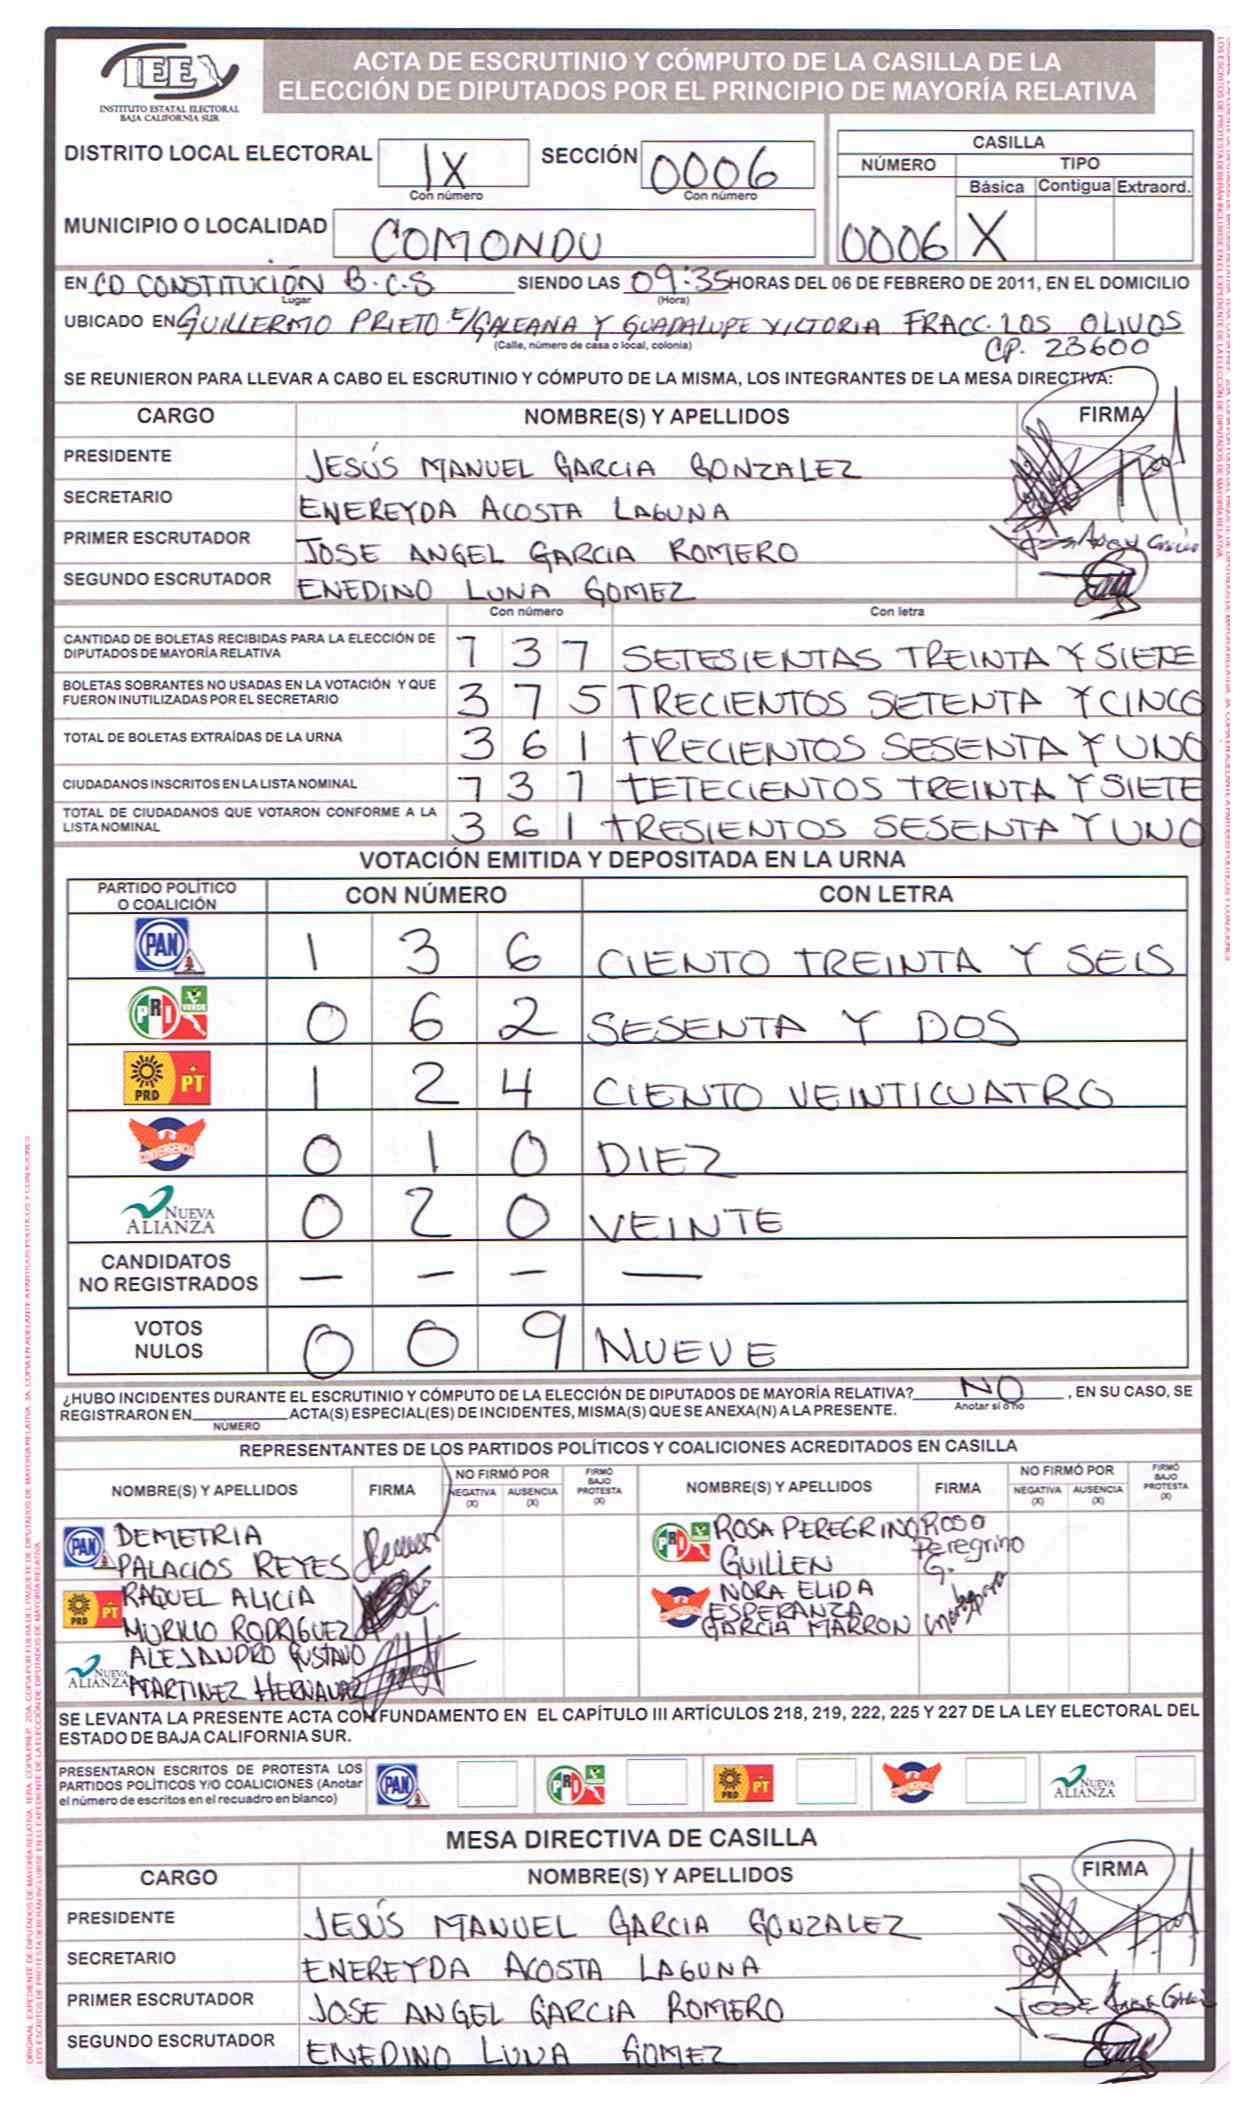 IEE
INSTITUTO ESTATAL ELECTORAL
BAJA CALIFORNIA SUR
ACTA DE ESCRUTINIO Y CÓMPUTO DE LA CASILLA DE LA
ELECCIÓN DE DIPUTADOS POR EL PRINCIPIO DE MAYORÍA RELATIVA
DISTRITO LOCAL ELECTORAL IX SECCIÓN 0006
Con número Con número
MUNICIPIO O LOCALIDAD COMONDU
CASILLA
NÚMERO TIPO
Básica Contigua Extraord.
0006 X
EN CD CONSTITUCIÓN B.C.S SIENDO LAS 09:35 HORAS DEL 06 DE FEBRERO DE 2011, EN EL DOMICILIO
Lugar (Hora)
UBICADO EN GUILLERMO PRIETO E/GALEANA Y GUADALUPE VICTORIA FRACC. LOS OLIVOS
(Calle, número de casa o local, colonia) CP. 23600
SE REUNIERON PARA LLEVAR A CABO EL ESCRUTINIO Y CÓMPUTO DE LA MISMA, LOS INTEGRANTES DE LA MESA DIRECTIVA:
CARGO NOMBRE(S) Y APELLIDOS FIRMA
PRESIDENTE JESÚS MANUEL GARCIA GONZALEZ
SECRETARIO ENEREYDA ACOSTA LAGUNA
PRIMER ESCRUTADOR JOSE ANGEL GARCIA ROMERO
SEGUNDO ESCRUTADOR ENEDINO LUNA GOMEZ
Con número Con letra
CANTIDAD DE BOLETAS RECIBIDAS PARA LA ELECCIÓN DE
DIPUTADOS DE MAYORÍA RELATIVA 7 3 7 SETESIENTAS TREINTA Y SIETE
BOLETAS SOBRANTES NO USADAS EN LA VOTACIÓN Y QUE
FUERON INUTILIZADAS POR EL SECRETARIO 3 7 5 TRECIENTOS SETENTA Y CINCO
TOTAL DE BOLETAS EXTRAÍDAS DE LA URNA 3 6 1 TRECIENTOS SESENTA Y UNO
CIUDADANOS INSCRITOS EN LA LISTA NOMINAL 7 3 7 TETECIENTOS TREINTA Y SIETE
TOTAL DE CIUDADANOS QUE VOTARON CONFORME A LA
LISTA NOMINAL 3 6 1 TRESIENTOS SESENTA Y UNO
VOTACIÓN EMITIDA Y DEPOSITADA EN LA URNA
PARTIDO POLÍTICO
O COALICIÓN CON NÚMERO CON LETRA
PAN 1 3 6 CIENTO TREINTA Y SEIS
PRI VERDE 0 6 2 SESENTA Y DOS
PRD PT 1 2 4 CIENTO VEINTICUATRO
CONVERGENCIA 0 1 0 DIEZ
NUEVA ALIANZA 0 2 0 VEINTE
CANDIDATOS
NO REGISTRADOS — — — —
VOTOS
NULOS 0 0 9 NUEVE
¿HUBO INCIDENTES DURANTE EL ESCRUTINIO Y CÓMPUTO DE LA ELECCIÓN DE DIPUTADOS DE MAYORÍA RELATIVA? NO , EN SU CASO, SE
Anotar si ó no
REGISTRARON EN ACTA(S) ESPECIAL(ES) DE INCIDENTES, MISMA(S) QUE SE ANEXA(N) A LA PRESENTE.
NÚMERO
REPRESENTANTES DE LOS PARTIDOS POLÍTICOS Y COALICIONES ACREDITADOS EN CASILLA
NOMBRE(S) Y APELLIDOS FIRMA NO FIRMÓ POR NEGATIVA (X) AUSENCIA (X) FIRMÓ BAJO PROTESTA (X) NOMBRE(S) Y APELLIDOS FIRMA NO FIRMÓ POR NEGATIVA (X) AUSENCIA (X) FIRMÓ BAJO PROTESTA (X)
PAN DEMETRIA
PALACIOS REYES
PRI ROSA PEREGRINO Rosa
GUILLEN Peregrino G.
PRD PT RAQUEL ALICIA
MURILLO RODRIGUEZ
CONVERGENCIA NORA ELIDA
ESPERANZA
GARCIA MARRON
NUEVA ALIANZA ALEJANDRO GUSTAVO
MARTINEZ
SE LEVANTA LA PRESENTE ACTA CON FUNDAMENTO EN EL CAPÍTULO III ARTÍCULOS 218, 219, 222, 225 Y 227 DE LA LEY ELECTORAL DEL
ESTADO DE BAJA CALIFORNIA SUR.
PRESENTARON ESCRITOS DE PROTESTA LOS
PARTIDOS POLÍTICOS Y/O COALICIONES (Anotar
el número de escritos en el recuadro en blanco)
PAN PRI PRD PT CONVERGENCIA NUEVA ALIANZA
MESA DIRECTIVA DE CASILLA
CARGO NOMBRE(S) Y APELLIDOS FIRMA
PRESIDENTE JESÚS MANUEL GARCIA GONZALEZ
SECRETARIO ENEREYDA ACOSTA LAGUNA
PRIMER ESCRUTADOR JOSE ANGEL GARCIA ROMERO
SEGUNDO ESCRUTADOR ENEDINO LUNA GOMEZ